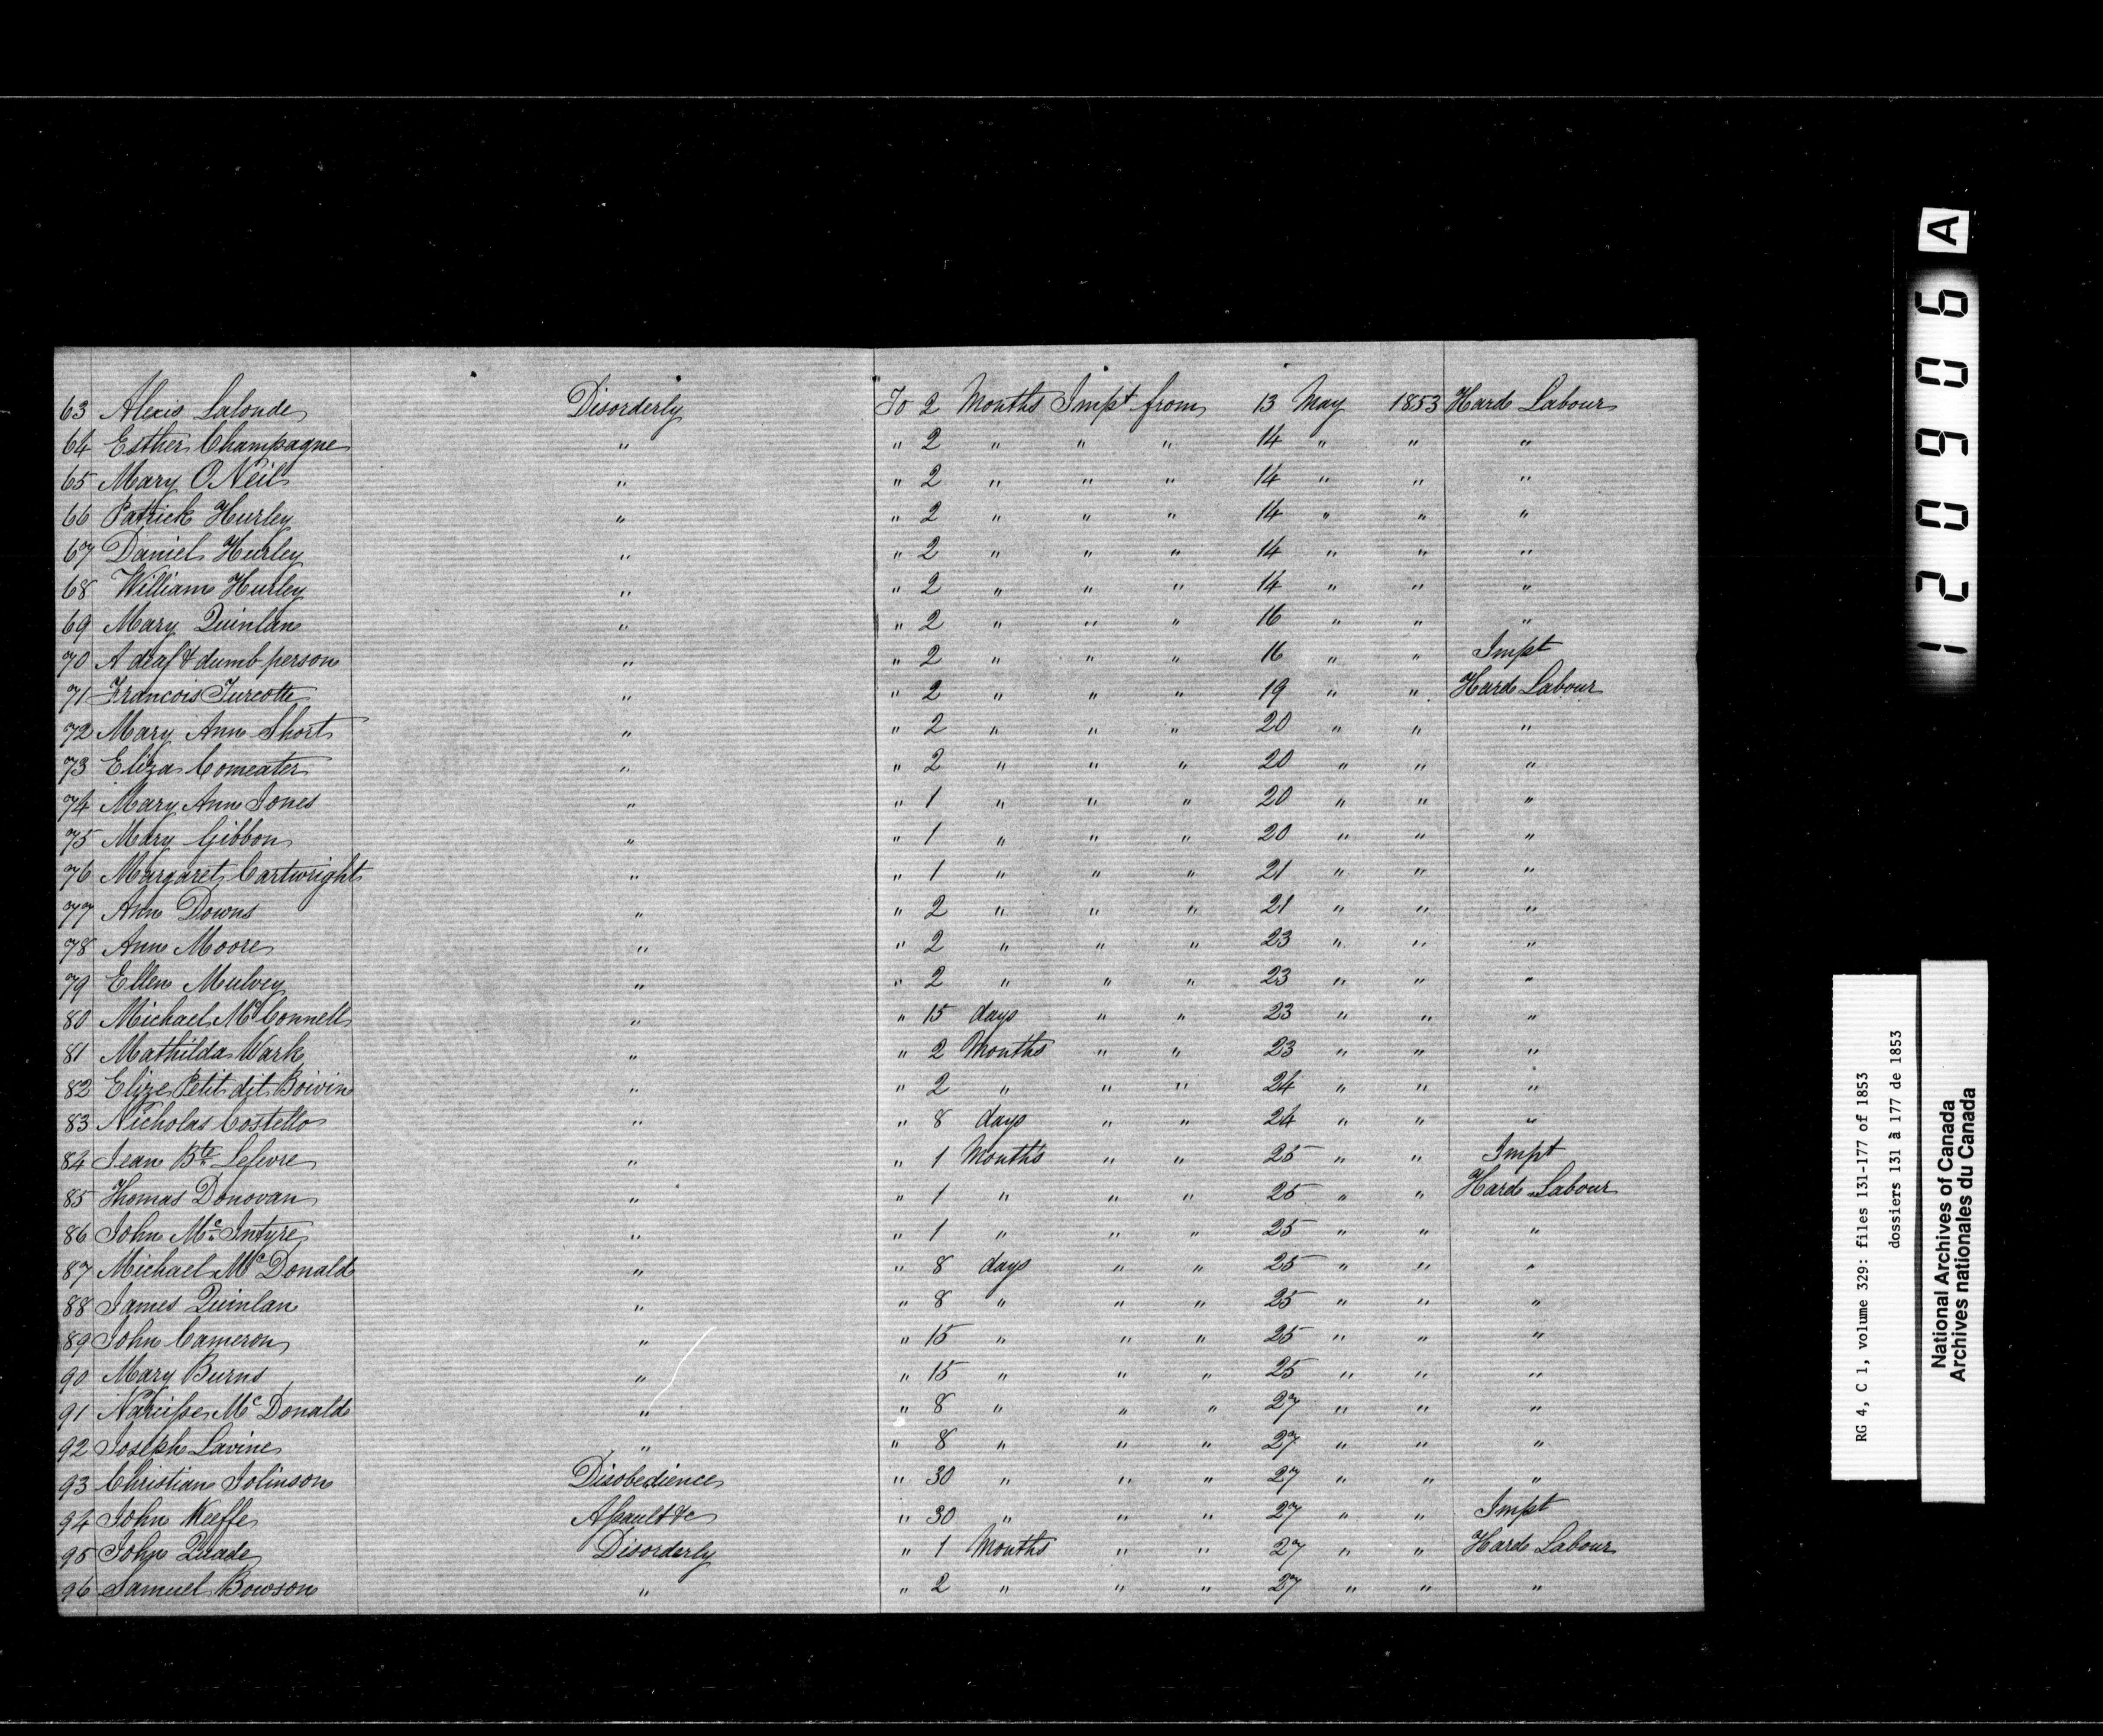 63 Alexis Lalonde Disorderly To 2 Months Impt from 13 May 1853 Hard Labour
64 Esther Champagne " " 2 " " " 14 " " "
65 Mary O'Neil " " 2 " " " 14 " " "
66 Patrick Hurley " " 2 " " " 14 " " "
67 Daniel Hurley " " 2 " " " 14 " " "
68 William Hurley " " 2 " " " 14 " " "
69 Mary Quinlan " " 2 " " " 16 " " "
70 A deaf & dumb person " " 2 " " " 16 " " Impt
71 Francois Turcotte " " 2 " " " 19 " " Hard Labour
72 Mary Ann Short " " 2 " " " 20 " " "
73 Eliza Comeater " " 2 " " " 20 " " "
74 Mary Ann Jones " " 1 " " " 20 " " "
75 Mary Gibbon " " 1 " " " 20 " " "
76 Margaret Cartwright " " 1 " " " 21 " " "
77 Ann Downs " " 2 " " " 21 " " "
78 Ann Moore " " 2 " " " 23 " " "
79 Ellen Mulvey " " 2 " " " 23 " " "
80 Michael McConnell " " 15 days " " 23 " " "
81 Mathilda Wark " " 2 Months " " 23 " " "
82 Elize Petit dit Boivin " " 2 " " " 24 " " "
83 Nicholas Costello " " 8 days " " 24 " " "
84 Jean Bte Lefevre " " 1 Months " " 25 " " Impt
85 Thomas Donovan " " 1 " " " 25 " " Hard Labour
86 John Mc Intyre " " 1 " " " 25 " " "
87 Michael McDonald " " 8 days " " 25 " " "
88 James Quinlan " " 8 " " " 25 " " "
89 John Cameron " " 15 " " " 25 " " "
90 Mary Burns " " 15 " " " 25 " " "
91 Narcisse McDonald " " 8 " " " 27 " " "
92 Joseph Lavine " " 8 " " " 27 " " "
93 Christian Johnson Disobedience " 30 " " " 27 " " "
94 John Keeffe Assault &c " 30 " " " 27 " " Impt
95 John Quade Disorderly " 1 Months " " 27 " " Hard Labour
96 Samuel Bowson " " 2 " " " 27 " " "
120906 A
RG 4, C 1, volume 329: files 131-177 of 1853
dossiers 131 à 177 de 1853
National Archives of Canada
Archives nationales du Canada